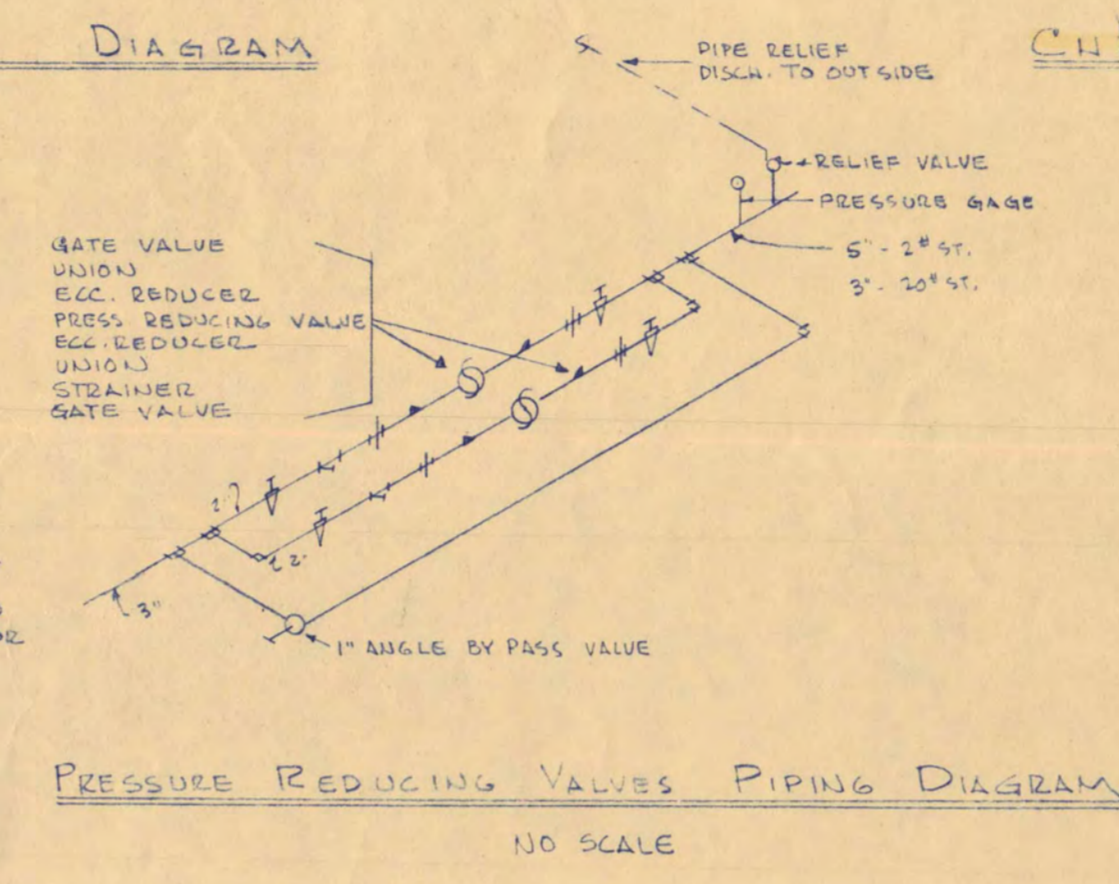 DIAGRAM
PIPE RELIEF
DISCH. TO OUTSIDE
RELIEF VALUE
PRESSURE GAGE
5" - 2# ST.
3" - 20# ST.
GATE VALUE
UNION
ECC. REDUCER
PRESS REDUCING VALUE
ECC. REDUCER
UNION
STRAINER
GATE VALUE
2"
2"
3"
1" ANGLE BY PASS VALUE
PRESSURE REDUCING VALVES PIPING DIAGRAM
NO SCALE